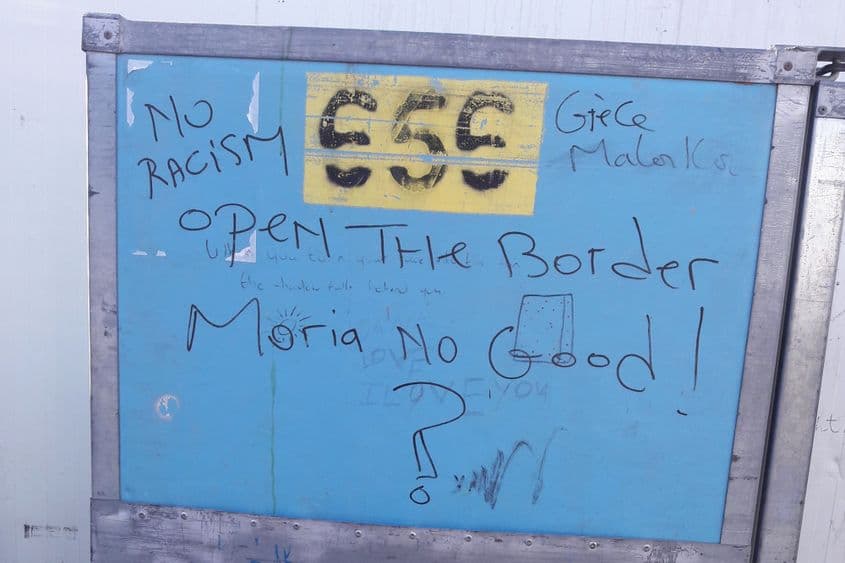 NO
RACISM
656
OPEN THE Border
the shadow falls behind you
Moria NO Good!
LOVE
I LOVE YOU
?